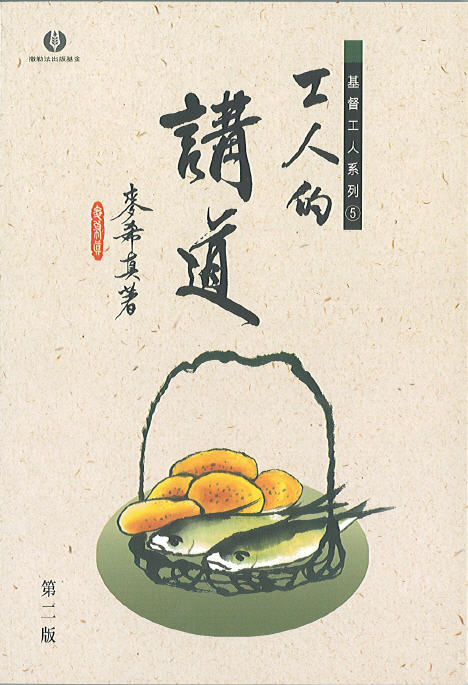 撒勒法出版基金
基督工人系列⑤
工人的
講道
麥希真著
第二版